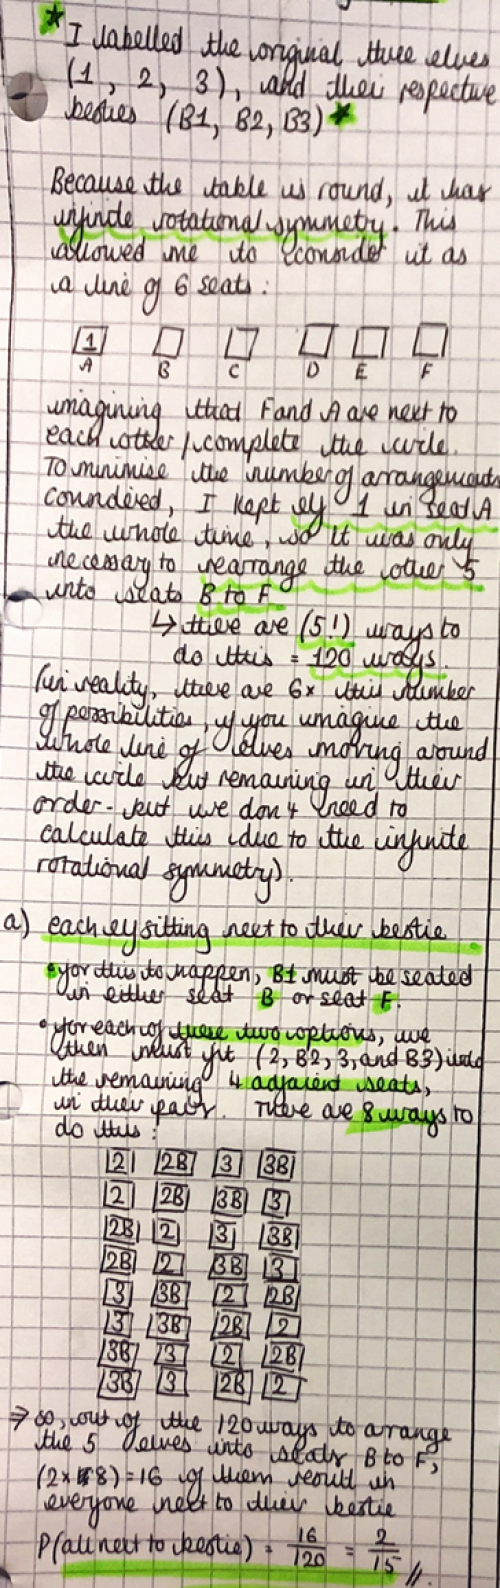 * I labelled the original three elves
(1, 2, 3), and their respective
besties (B1, B2, B3) *
Because the table is round, it has
infinite rotational symmetry. This
allowed me to consider it as
a line of 6 seats:
1
A B C D E F
imagining that F and A are next to
each other / complete the circle.
To minimise the number of arrangements
considered, I kept elf 1 in seat A
the whole time, so it was only
necessary to rearrange the other 5
into seats B to F.
↳ there are (5!) ways to
do this = 120 ways.
(in reality, there are 6x this number
of possibilities, if you imagine the
whole line of elves moving around
the circle but remaining in their
order - but we don't need to
calculate this due to the infinite
rotational symmetry).
a) each elf sitting next to their bestie
• for this to happen, B1 must be seated
in either seat B or seat F.
• for each of these two options, we
then must fit (2, B2, 3, and B3) into
the remaining 4 adjacent seats,
in their pairs. There are 8 ways to
do this:
2 2B 3 3B
2 2B 3B 3
2B 2 3 3B
2B 2 3B 3
3 3B 2 2B
3 3B 2B 2
3B 3 2 2B
3B 3 2B 2
⇒ so, out of the 120 ways to arrange
the 5 elves into seats B to F,
(2 x 8) = 16 of them result in
everyone next to their bestie
P(all next to bestie) = 16/120 = 2/15 //